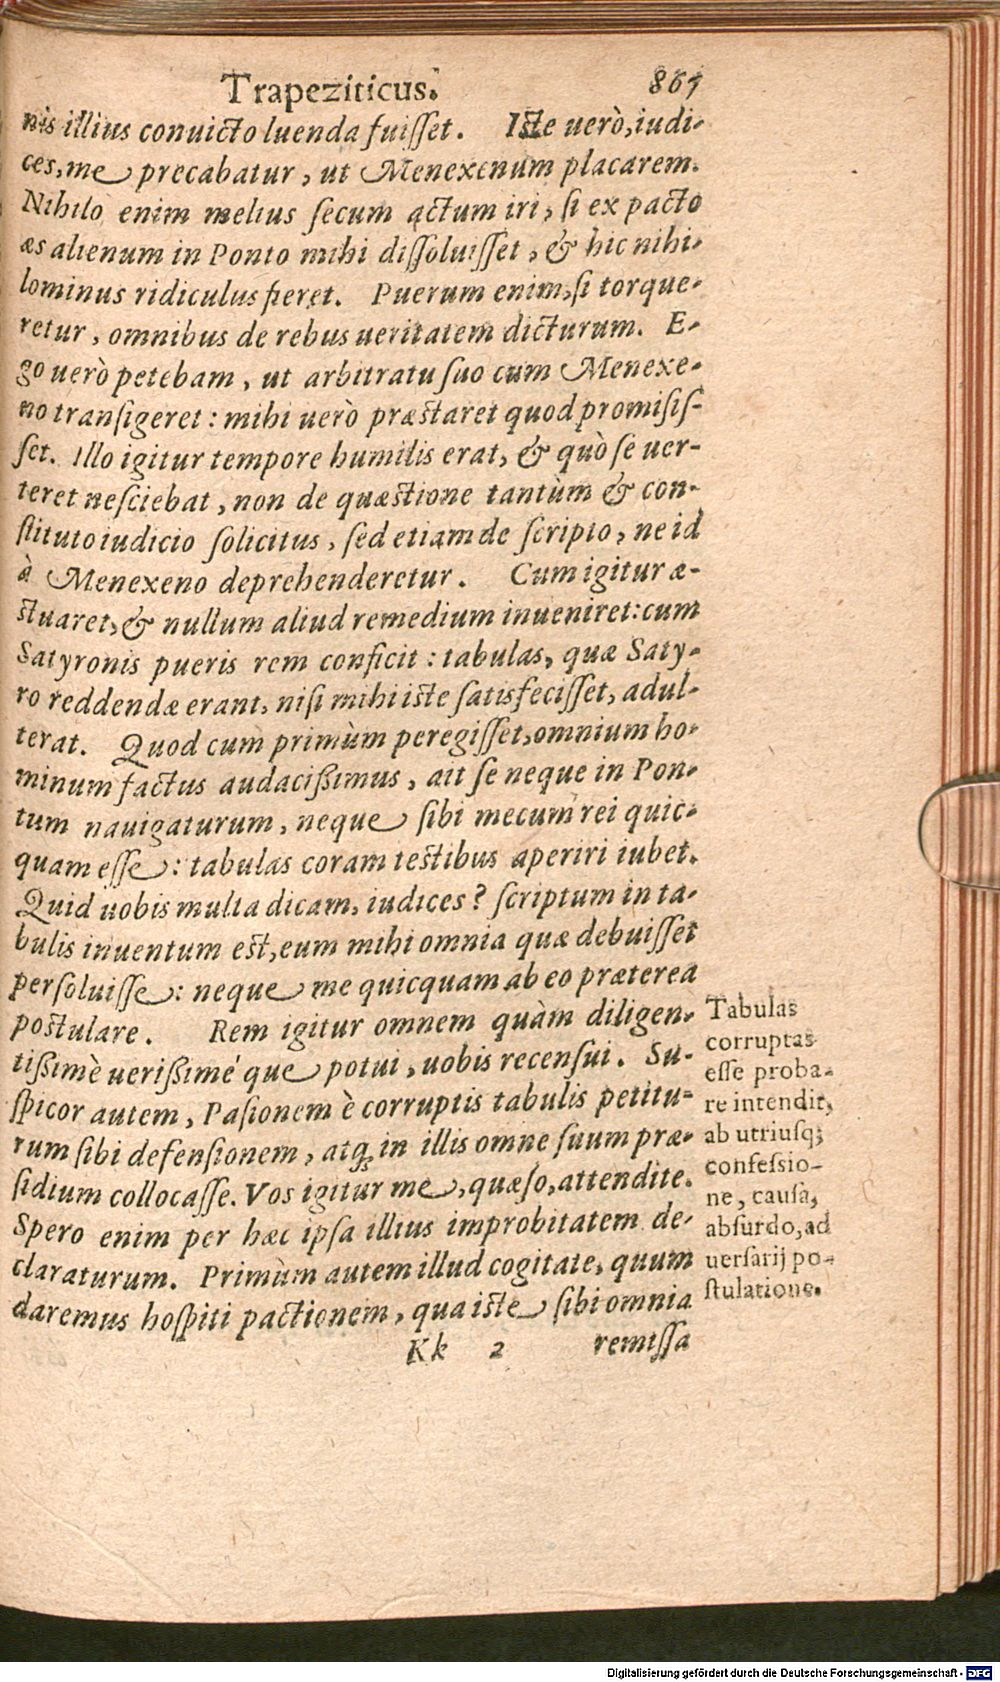 Trapeziticus. 867
nis illius conuicto luenda fuisset. Iste uerò, iudi-
ces, me precabatur, ut Menexenum placarem.
Nihilo enim melius secum actum iri, si ex pacto
æs alienum in Ponto mihi dissoluisset, & hic nihi-
lominus ridiculus fieret. Puerum enim, si torque-
retur, omnibus de rebus ueritatem dicturum. E-
go uerò petebam, ut arbitratu suo cum Menexe-
no transigeret: mihi uerò præstaret quod promisis-
set. Illo igitur tempore humilis erat, & quò se uer-
teret nesciebat, non de quæstione tantùm & con-
stituto iudicio solicitus, sed etiam de scripto, ne id
à Menexeno deprehenderetur. Cum igitur æ-
stuaret, & nullum aliud remedium inueniret: cum
Satyronis pueris rem conficit: tabulas, quæ Saty-
ro reddendæ erant, nisi mihi iste satisfecisset, adul-
terat. Quod cum primùm peregisset, omnium ho-
minum factus audacißimus, ait se neque in Pon-
tum nauigaturum, neque sibi mecum rei quic-
quam esse: tabulas coram testibus aperiri iubet.
Quid uobis multa dicam, iudices? scriptum in ta-
bulis inuentum est, eum mihi omnia quæ debuisset
persoluisse: neque me quicquam ab eo præterea
postulare. Rem igitur omnem quàm diligen-
tißimè uerißimé que potui, uobis recensui. Su-
spicor autem, Pasionem è corruptis tabulis petitu-
rum sibi defensionem, atq; in illis omne suum præ-
sidium collocasse. Vos igitur me, quæso, attendite.
Spero enim per hæc ipsa illius improbitatem de-
claraturum. Primùm autem illud cogitate, quum
daremus hospiti pactionem, qua iste sibi omnia
Kk 2 remissa
Tabulas
corruptas
esse proba-
re intendit,
ab utriusq;
confessio-
ne, causa,
absurdo, ad
uersarij po-
stulatione.
Digitalisierung gefördert durch die Deutsche Forschungsgemeinschaft - DFG